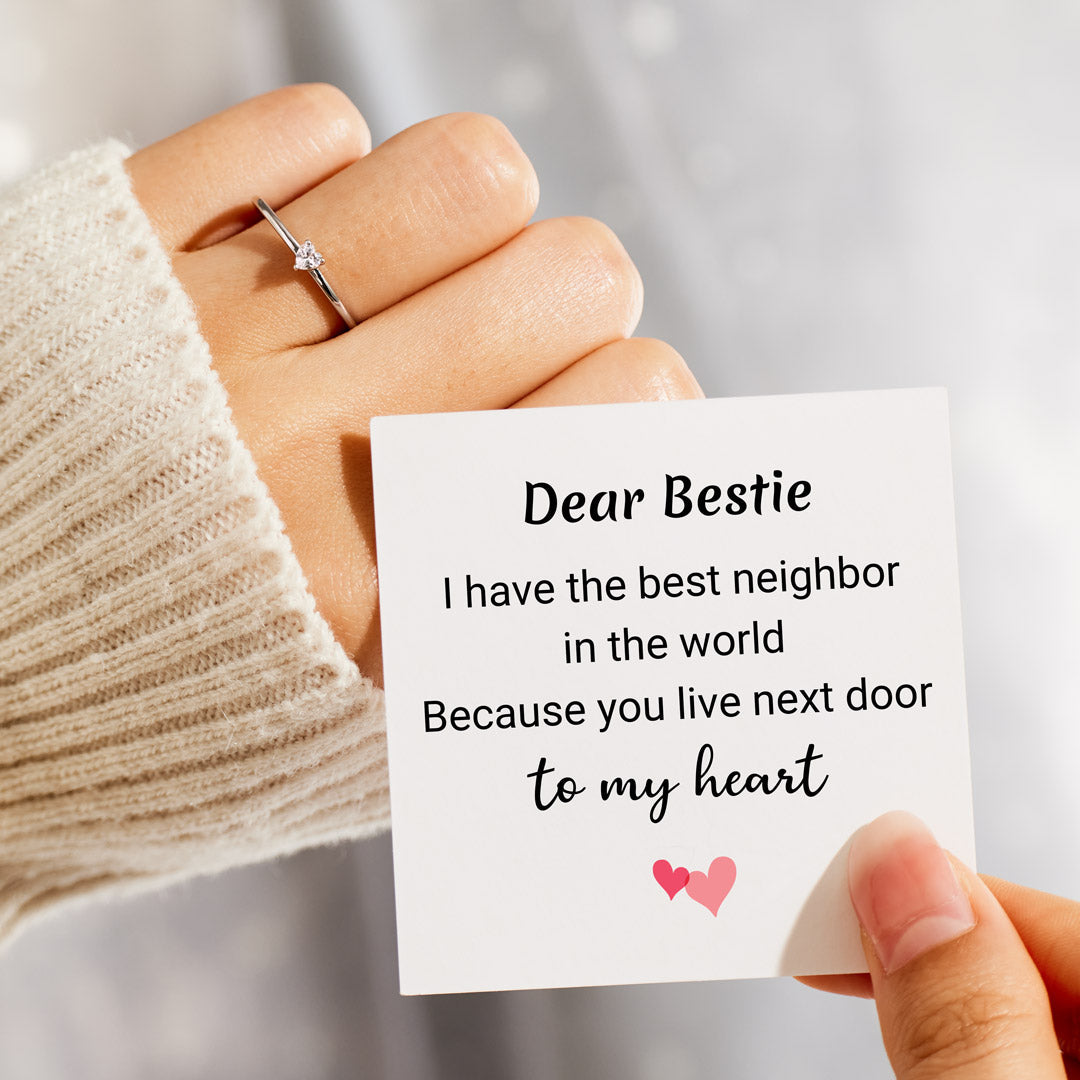 Dear Bestie
I have the best neighbor
in the world
Because you live next door
to my heart